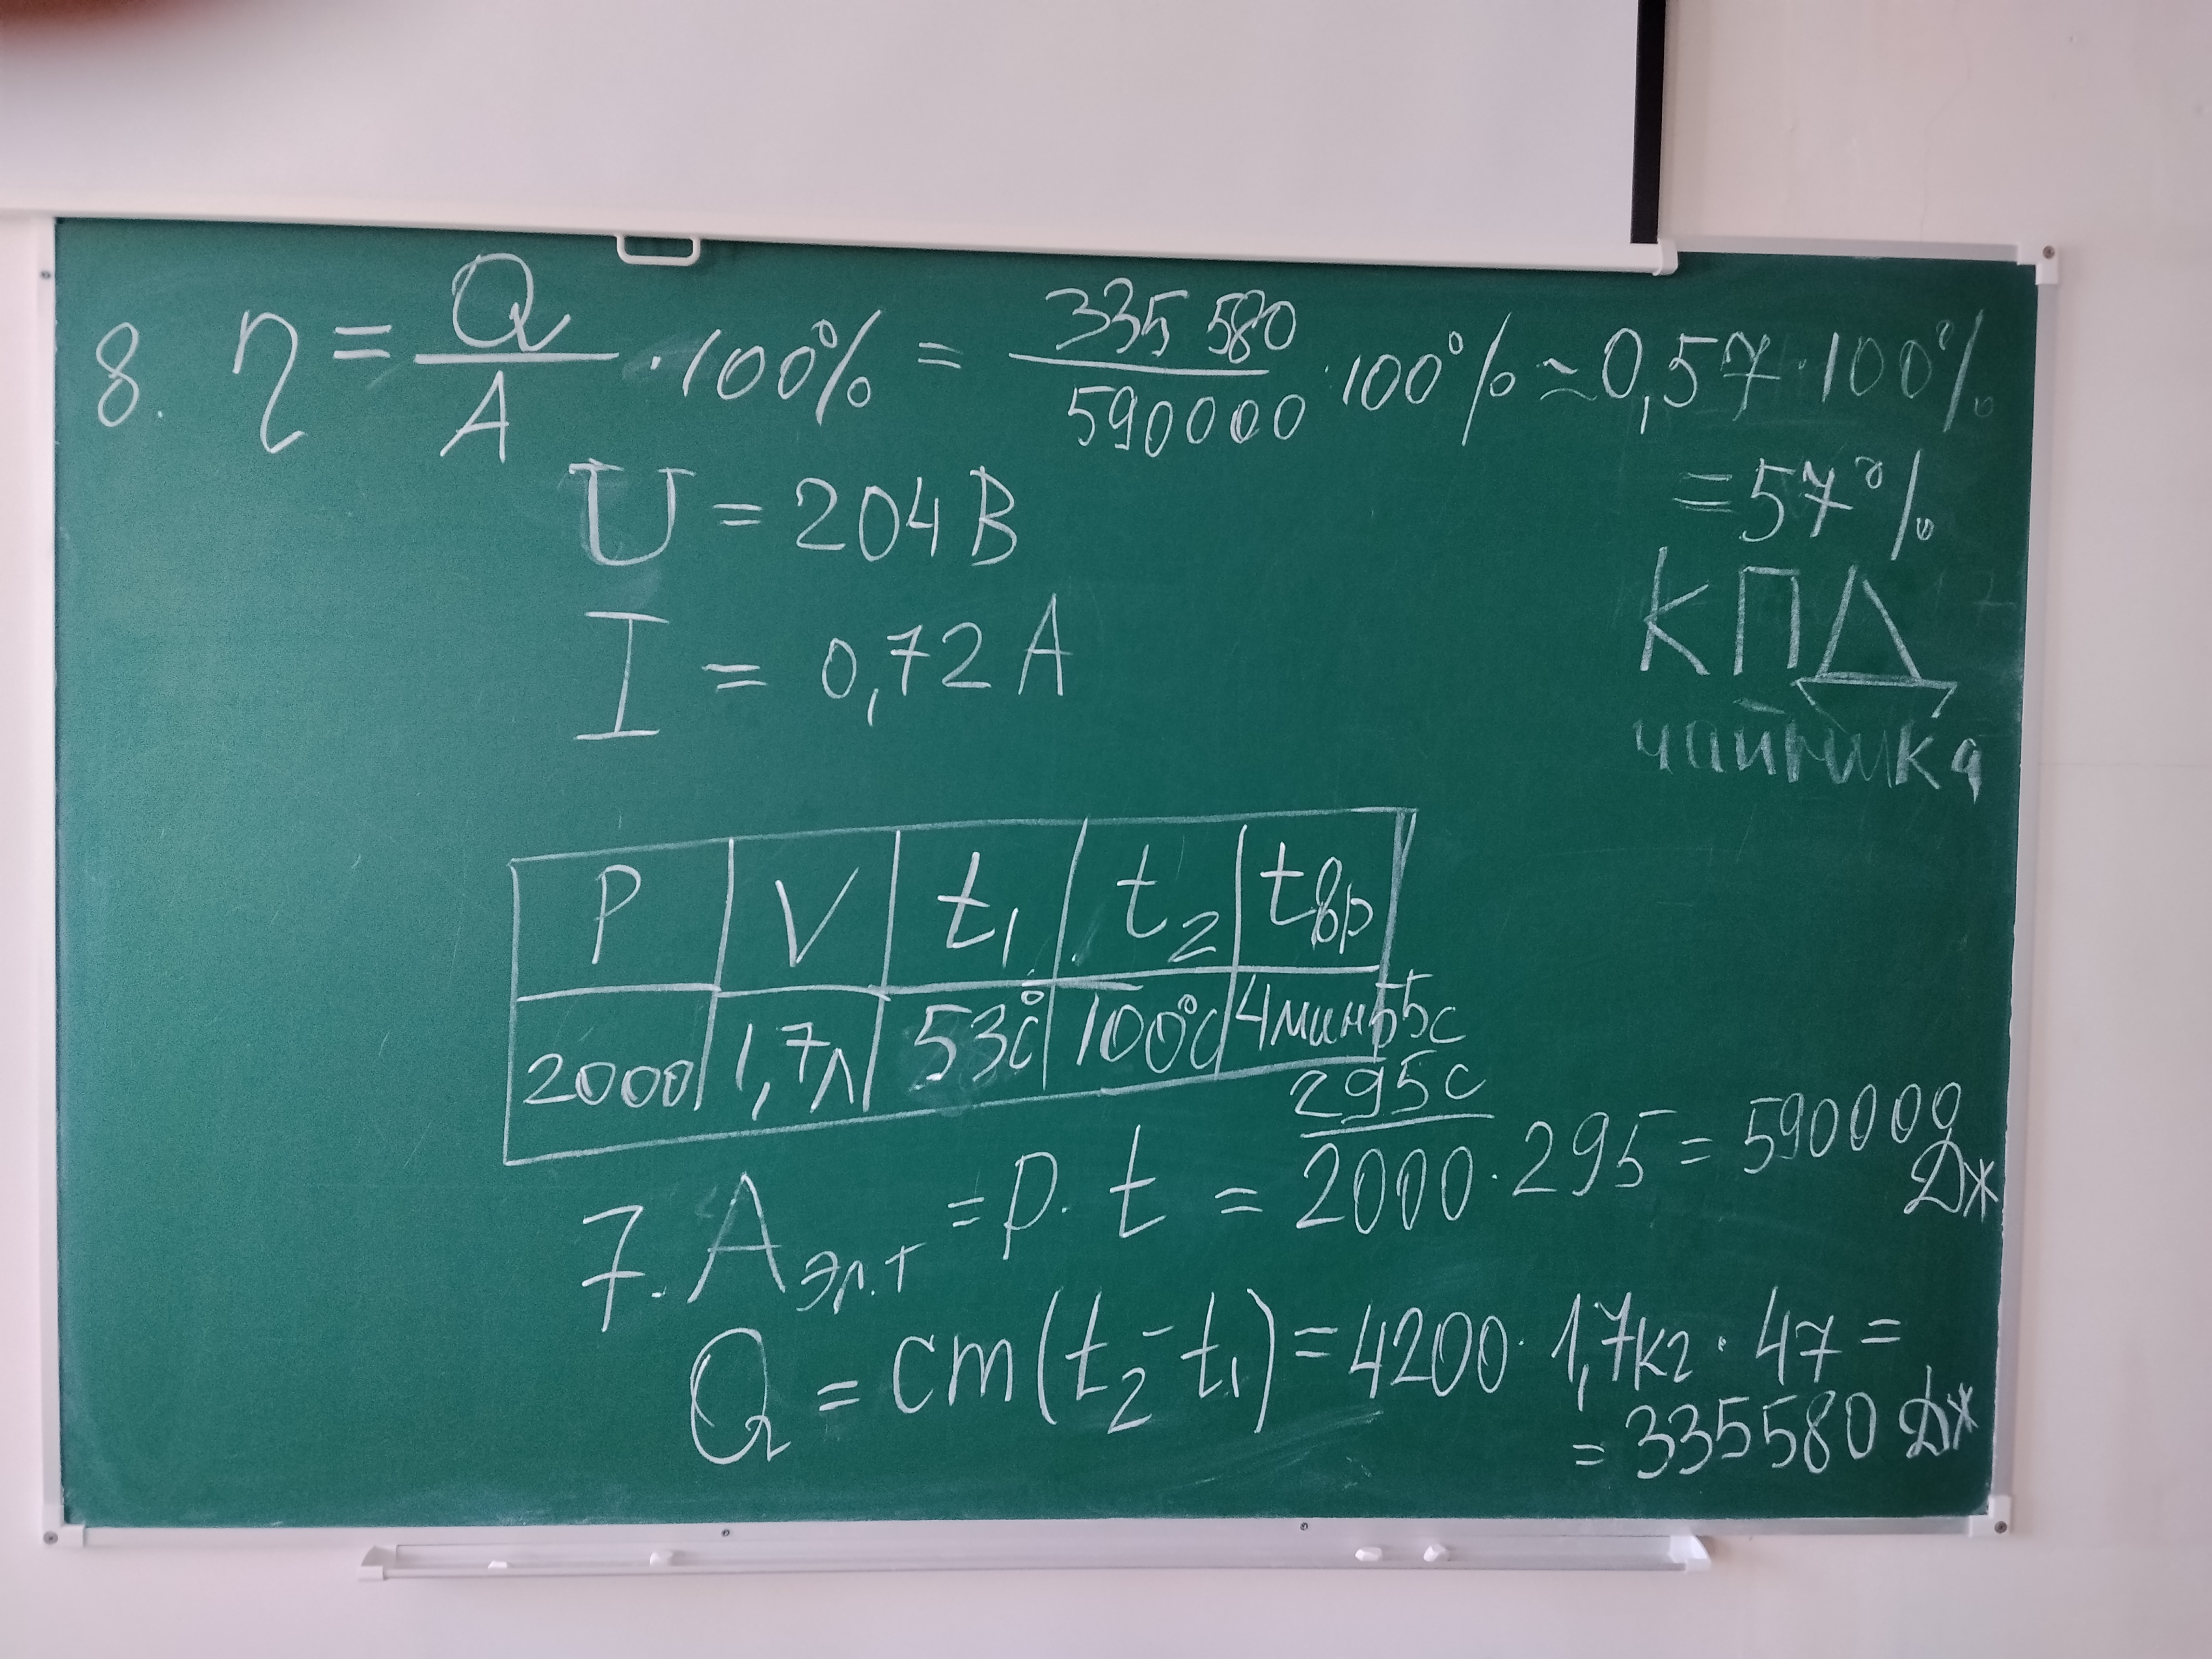 8. η = Q/A · 100% = 335 580/590000 · 100% ≃ 0,57 · 100%
= 57%
U = 204 В
I = 0,72 А
КПД
чайника
P | V | t₁ | t₂ | tвр
2000 | 1,7л | 53°С | 100°С | 4мин55с
295с
7. Aэл.т = p · t = 2000 · 295 = 590000 Дж
Q = cm(t₂ - t₁) = 4200 · 1,7кг · 47 =
= 335580 Дж